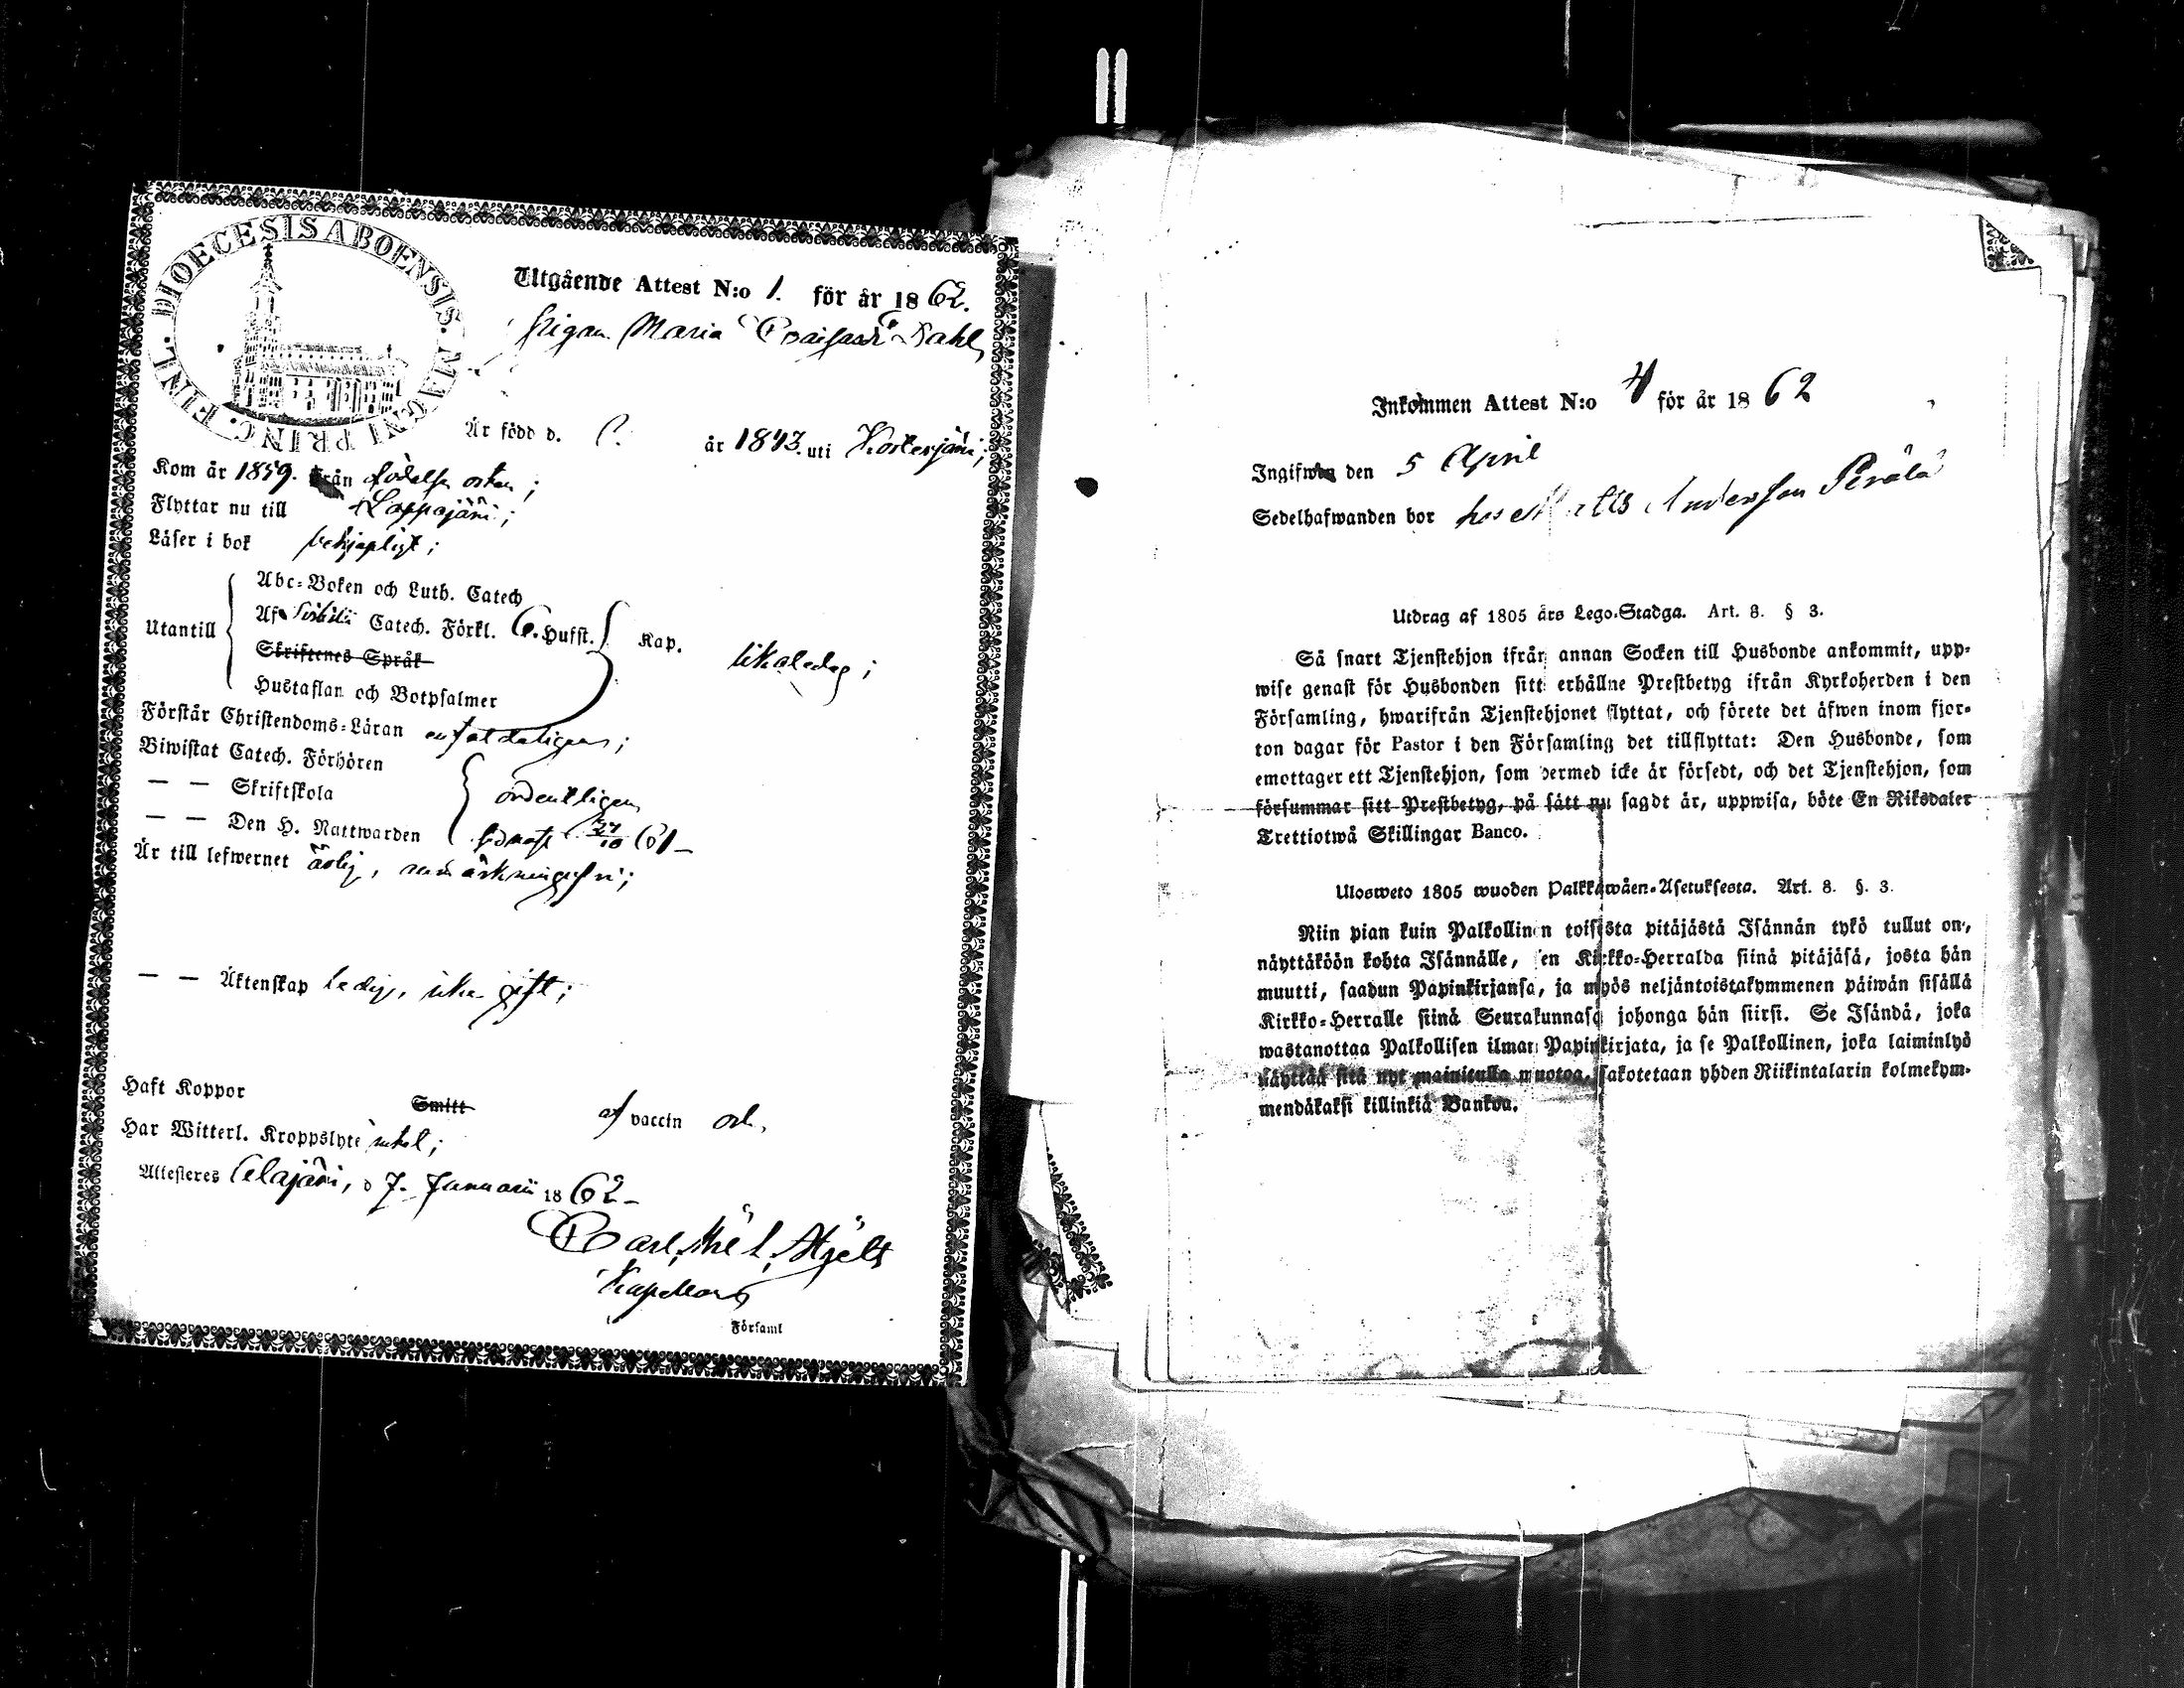 DIOECESIS ABOENSIS. MAGNI PRINC. FINL.
Utgående Attest N:o 1. för år 1862.
Pigan Maria
Är född d. år 1843. uti
Kom år 1859. från födelse orten;
Flyttar nu till Lappajärvi;
Läser i bok
Utantill
Abc-Boken och Luth. Catech
Af Catech. Förkl. 6. Hufst. Kap.
Skriftenes Språk
Hustaflan och Botpsalmer
likaledes;
Förstår Christendoms-Läran
Biwistat Catech. Förhören
— — Skriftskola ordentligen
— — Den H. Nattwarden 61–
Är till lefwernet ärlig,
— — Äktenskap ledig, icke gift;
Haft Koppor Smitt af vaccin
Har Witterl. Kroppslyte intet;
Attesteres Alajärvi, d 7. Januarii 1862–
Carl
Kapellan
Församl
Inkommen Attest N:o 4 för år 1862
Ingifwen den 5 April
Sedelhafwanden bor hos Matts Andersson Perälä
Utdrag af 1805 års Lego-Stadga. Art. 8. § 3.
Så snart Tjenstehjon ifrån annan Socken till Husbonde ankommit, upp-
wise genast för Husbonden sitt erhållne Prestbetyg ifrån Kyrkoherden i den
Församling, hwarifrån Tjenstehjonet flyttat, och förete det äfwen inom fjor-
ton dagar för Pastor i den Församling det tillflyttat: Den Husbonde, som
emottager ett Tjenstehjon, som dermed icke är försedt, och det Tjenstehjon, som
försummar sitt Prestbetyg, på sätt nu sagdt är, uppwisa, böte En Riksdaler
Trettiotwå Skillingar Banco.
Ulosweto 1805 wuoden Palkkawäen-Asetuksesta. Art. 8. §. 3.
Niin pian kuin Palkollinen toisesta pitäjästä Isännän tykö tullut on,
näyttäköön kohta Isännälle, sen Kirkko-Herralda siinä pitäjäsä, josta hän
muutti, saadun Papinkirjansa, ja myös neljäntoistakymmenen päiwän sisällä
Kirkko-Herralle siinä Seurakunnasa johonga hän siirsi. Se Isändä, joka
wastanottaa Palkollisen ilman Papinkirjata, ja se Palkollinen, joka laiminlyö
näyttää sitä nyt mainitulla muotoa, sakotetaan yhden Riikintalarin kolmekym-
mendäkaksi killinkiä Bankoa.